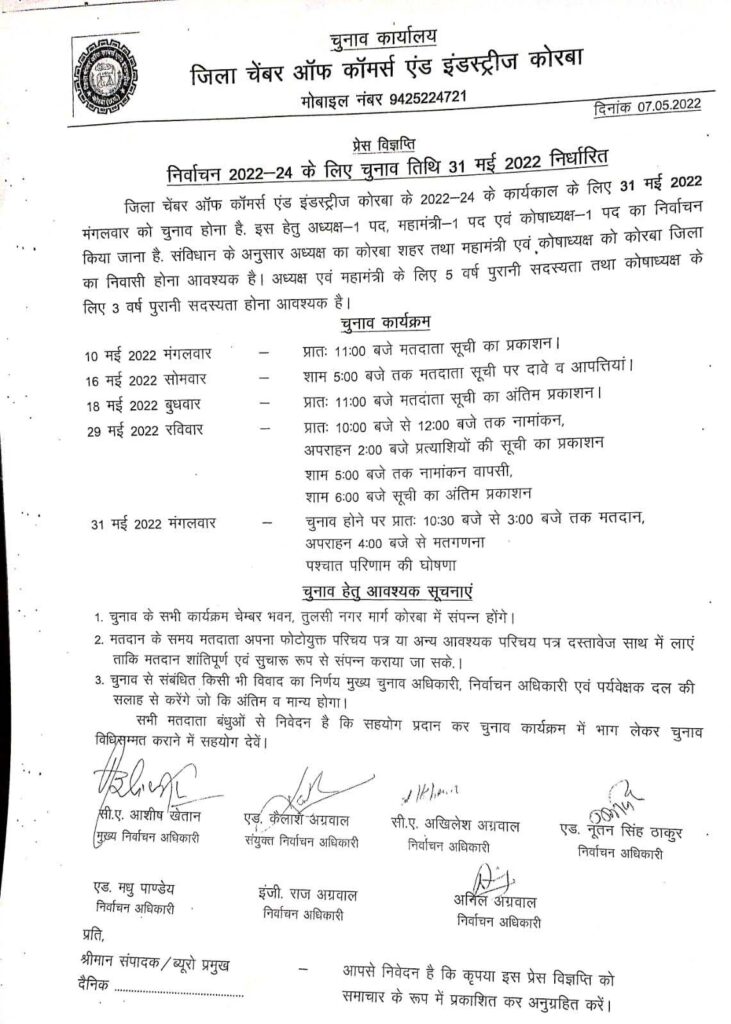 चुनाव कार्यालय
जिला चेंबर ऑफ कॉमर्स एंड इंडस्ट्रीज कोरबा
मोबाइल नंबर 9425224721
दिनांक 07.05.2022
प्रेस विज्ञप्ति
निर्वाचन 2022–24 के लिए चुनाव तिथि 31 मई 2022 निर्धारित
जिला चेंबर ऑफ कॉमर्स एंड इंडस्ट्रीज कोरबा के 2022–24 के कार्यकाल के लिए 31 मई 2022
मंगलवार को चुनाव होना है. इस हेतु अध्यक्ष–1 पद, महामंत्री–1 पद एवं कोषाध्यक्ष–1 पद का निर्वाचन
किया जाना है. संविधान के अनुसार अध्यक्ष का कोरबा शहर तथा महामंत्री एवं कोषाध्यक्ष को कोरबा जिला
का निवासी होना आवश्यक है। अध्यक्ष एवं महामंत्री के लिए 5 वर्ष पुरानी सदस्यता तथा कोषाध्यक्ष के
लिए 3 वर्ष पुरानी सदस्यता होना आवश्यक है।
चुनाव कार्यक्रम
10 मई 2022 मंगलवार – प्रातः 11:00 बजे मतदाता सूची का प्रकाशन।
16 मई 2022 सोमवार – शाम 5:00 बजे तक मतदाता सूची पर दावे व आपत्तियां।
18 मई 2022 बुधवार – प्रातः 11:00 बजे मतदाता सूची का अंतिम प्रकाशन।
29 मई 2022 रविवार – प्रातः 10:00 बजे से 12:00 बजे तक नामांकन,
अपराहन 2:00 बजे प्रत्याशियों की सूची का प्रकाशन
शाम 5:00 बजे तक नामांकन वापसी,
शाम 6:00 बजे सूची का अंतिम प्रकाशन
31 मई 2022 मंगलवार – चुनाव होने पर प्रातः 10:30 बजे से 3:00 बजे तक मतदान,
अपराहन 4:00 बजे से मतगणना
पश्चात परिणाम की घोषणा
चुनाव हेतु आवश्यक सूचनाएं
1. चुनाव के सभी कार्यक्रम चेम्बर भवन, तुलसी नगर मार्ग कोरबा में संपन्न होंगे।
2. मतदान के समय मतदाता अपना फोटोयुक्त परिचय पत्र या अन्य आवश्यक परिचय पत्र दस्तावेज साथ में लाएं
ताकि मतदान शांतिपूर्ण एवं सुचारू रूप से संपन्न कराया जा सके।
3. चुनाव से संबंधित किसी भी विवाद का निर्णय मुख्य चुनाव अधिकारी, निर्वाचन अधिकारी एवं पर्यवेक्षक दल की
सलाह से करेंगे जो कि अंतिम व मान्य होगा।
सभी मतदाता बंधुओं से निवेदन है कि सहयोग प्रदान कर चुनाव कार्यक्रम में भाग लेकर चुनाव
विधिसम्मत कराने में सहयोग देवें।
सी.ए. आशीष खेतान एड. कैलाश अग्रवाल सी.ए. अखिलेश अग्रवाल एड. नूतन सिंह ठाकुर
मुख्य निर्वाचन अधिकारी संयुक्त निर्वाचन अधिकारी निर्वाचन अधिकारी निर्वाचन अधिकारी
एड. मधु पाण्डेय इंजी. राज अग्रवाल अनिल अग्रवाल
निर्वाचन अधिकारी निर्वाचन अधिकारी निर्वाचन अधिकारी
प्रति,
श्रीमान संपादक/ब्यूरो प्रमुख – आपसे निवेदन है कि कृपया इस प्रेस विज्ञप्ति को
दैनिक ............................... समाचार के रूप में प्रकाशित कर अनुग्रहित करें।